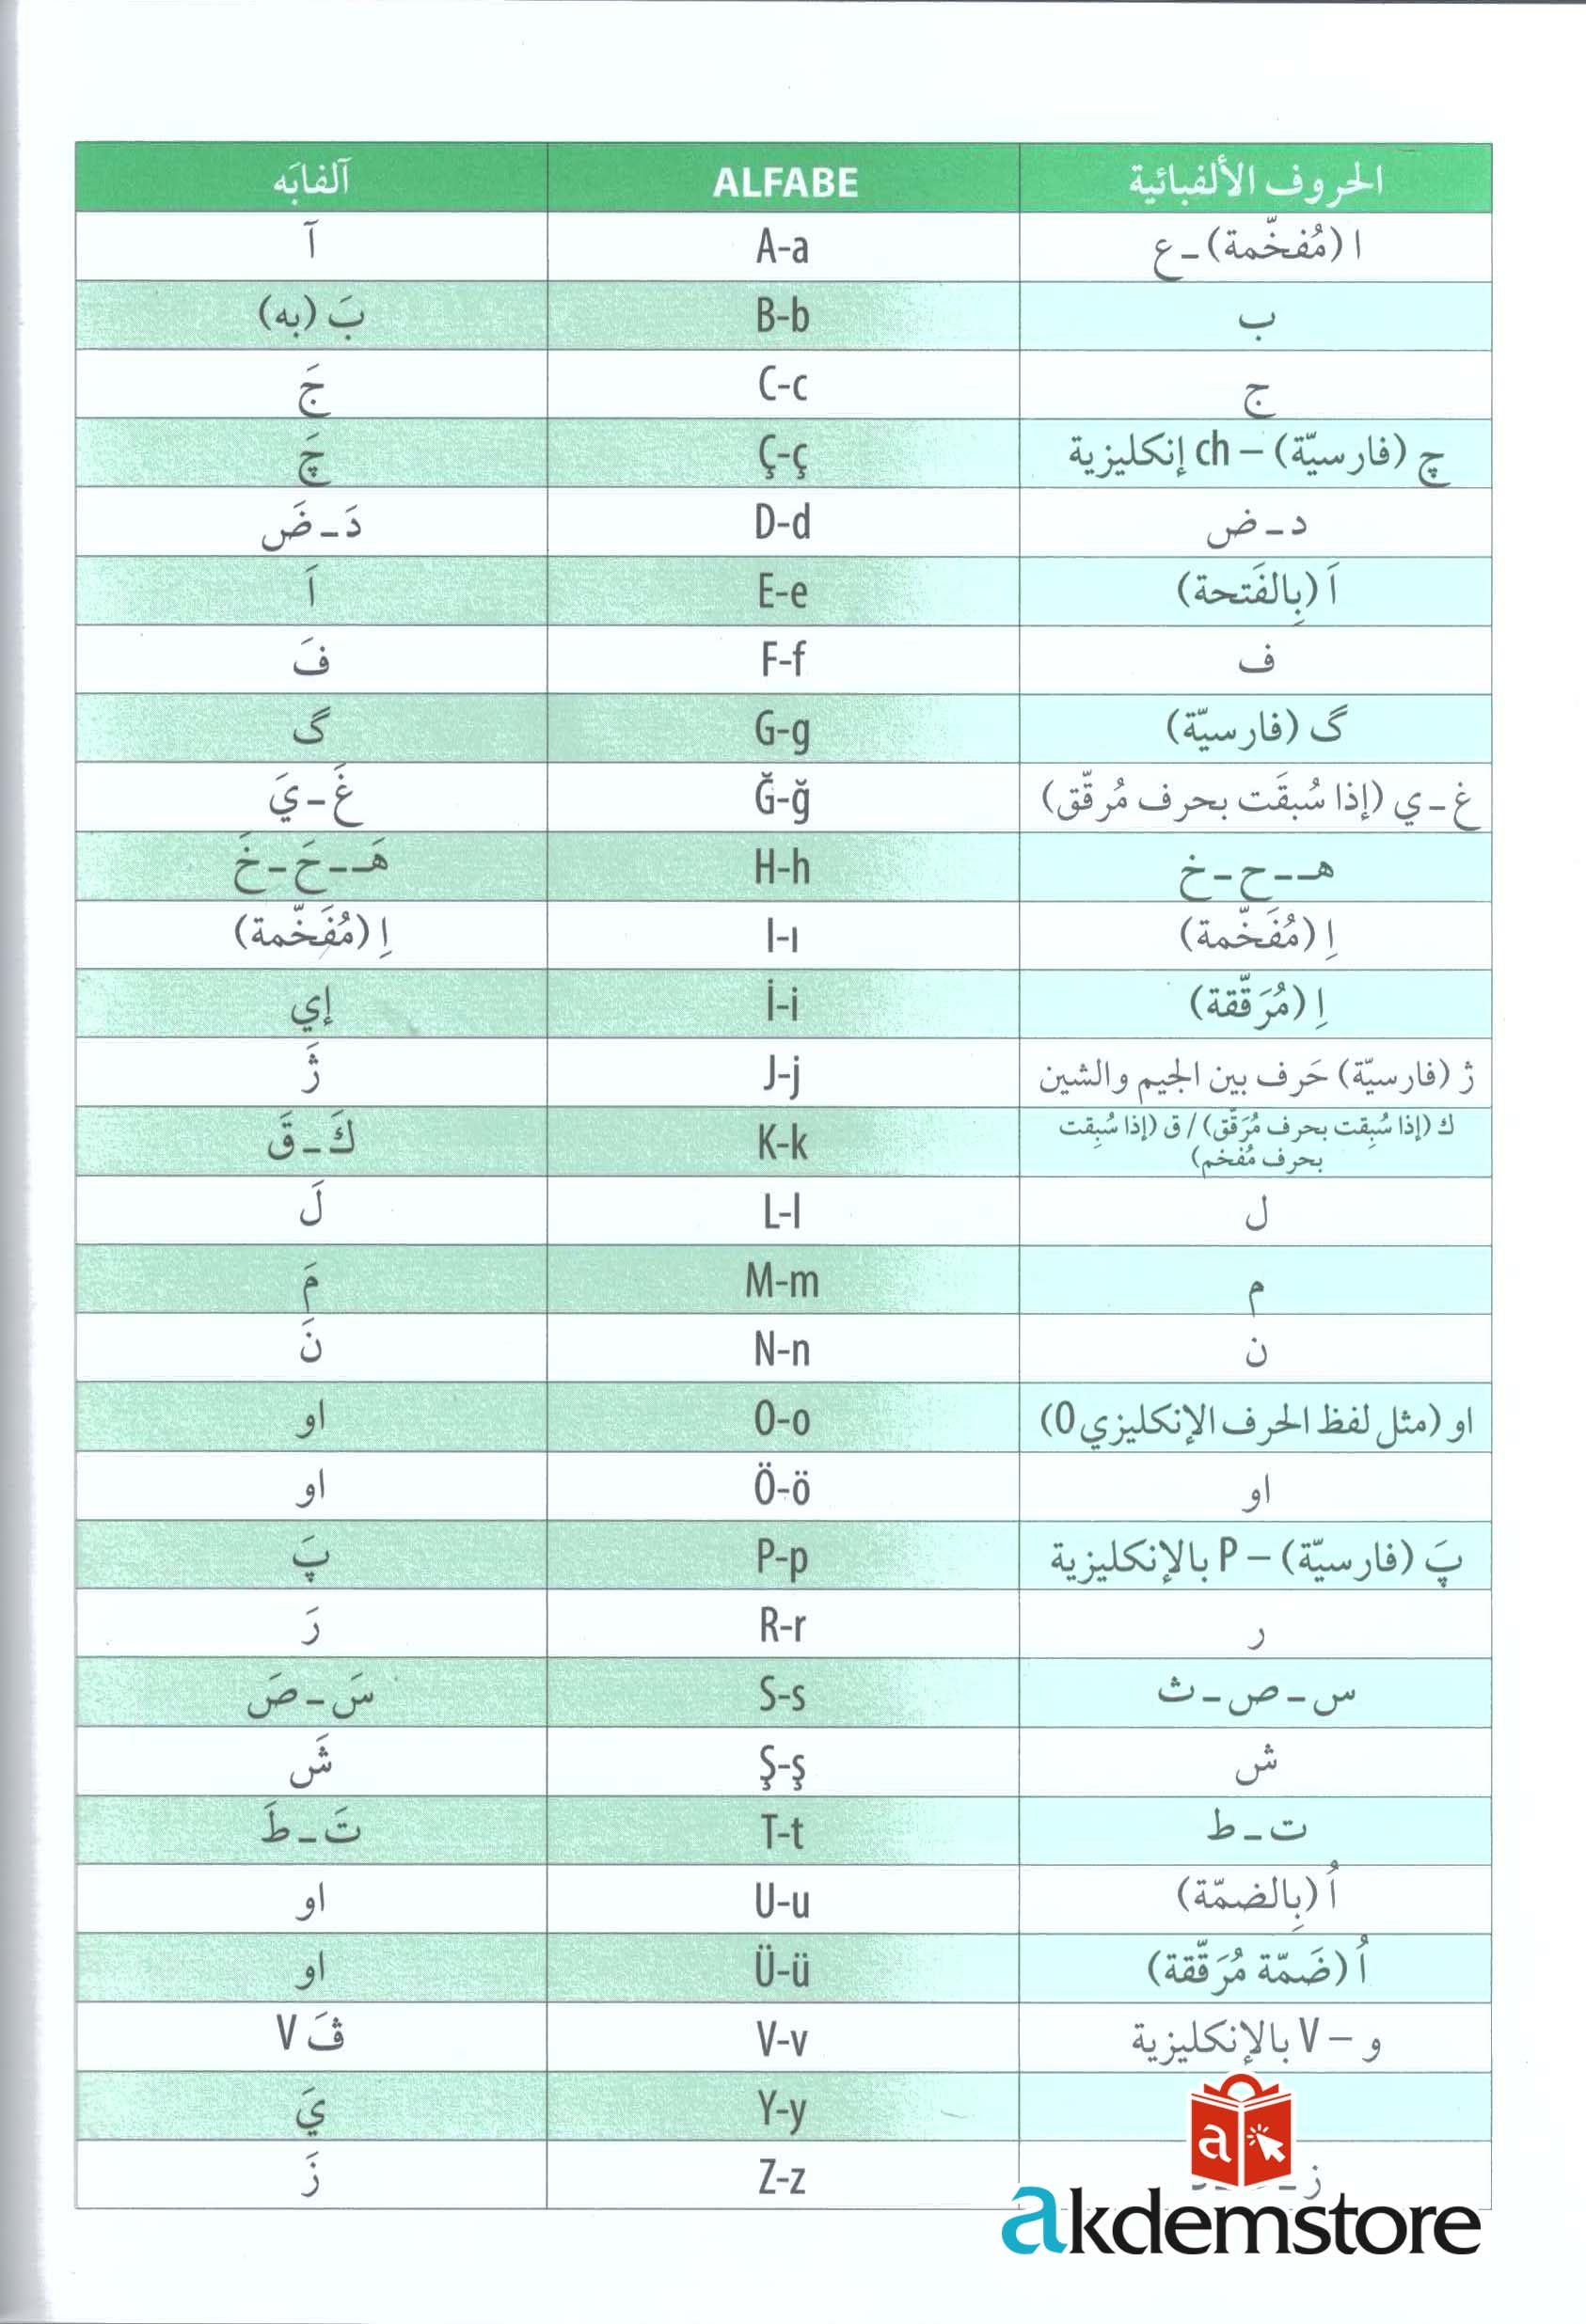 الحروف الألفبائية ALFABE آلفابَه
ا (مُفخّمة) ـ ع A-a آ
ب B-b بَ (به)
ج C-c جَ
چ (فارسيّة) – ch إنكليزية Ç-ç چَ
د ـ ض D-d دَ ـ ضَ
اَ (بِالفَتحة) E-e اَ
ف F-f فَ
گ (فارسيّة) G-g گ
غ ـ ي (إذا سُبقَت بحرف مُرقّق) Ğ-ğ غَ ـ يَ
هـ ـ ح ـ خ H-h هَـ ـ حَ ـ خَ
اِ (مُفَخّمة) I-ı اِ (مُفَخّمة)
اِ (مُرَقّقة) İ-i إي
ژ (فارسيّة) حَرف بين الجيم والشين J-j ژَ
ك (إذا سُبِقت بحرف مُرَقّق) / ق (إذا سُبِقت
بحرف مُفخم) K-k كَ ـ قَ
ل L-l لَ
م M-m مَ
ن N-n نَ
او (مثل لفظ الحرف الإنكليزي O) O-o او
او Ö-ö او
پَ (فارسيّة) – P بالإنكليزية P-p پَ
ر R-r رَ
س ـ ص ـ ث S-s سَ ـ صَ
ش Ş-ş شَ
ت ـ ط T-t تَ ـ طَ
اُ (بِالضمّة) U-u او
اُ (ضَمّة مُرَقّقة) Ü-ü او
و – V بالإنكليزية V-v ڤَ V
Y-y يَ
ز Z-z زَ
a
akdemstore